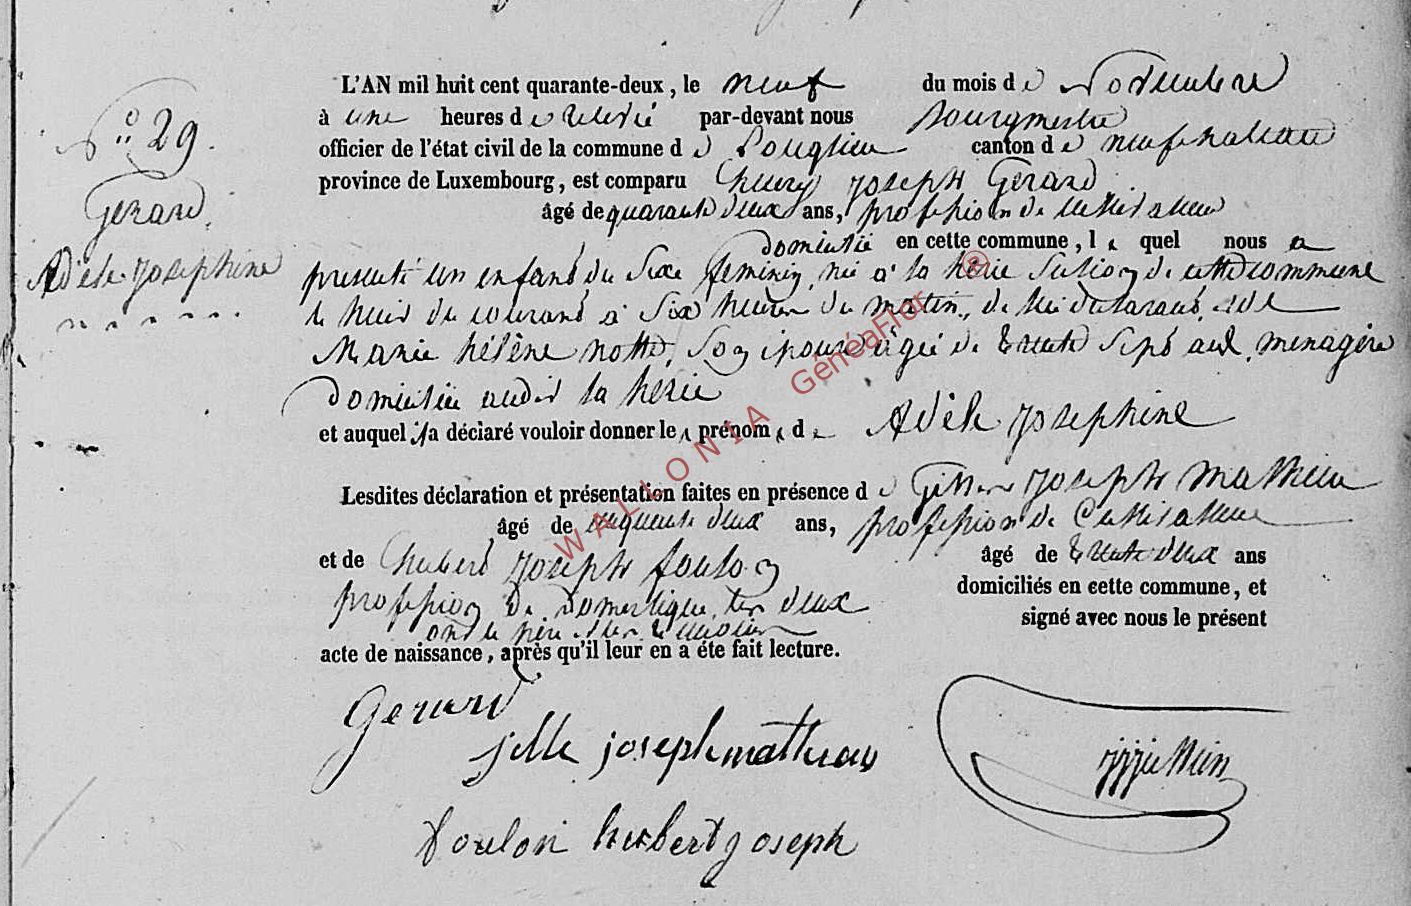 N° 29.
Gerard
Adèle Josephine
L'AN mil huit cent quarante-deux, le neuf du mois de Novembre
à une heures de relevé par-devant nous Bourgmestre
officier de l'état civil de la commune de Longlier canton de neufchateau
province de Luxembourg, est comparu henry joseph Gerard
âgé de quarante deux ans, profession de cultivateur
domicilié en cette commune, le quel nous a
presenté un enfant du sexe feminin, né à la hérie section de cette commune
le huit du courant à six heures du matin, de lui déclarant, et de
Marie hélène notte, son épouse agée de trente sept ans, menagère
domiciliée audit la hérie
et auquel il a déclaré vouloir donner les prénoms de Adèle Josephine
Lesdites déclaration et présentation faites en présence de joseph mathieu
âgé de cinquante deux ans, profession de Cultivateur
et de hubert joseph foulon âgé de trente deux ans
profession de domestique, tous deux domiciliés en cette commune, et
ont le père et les temoins signé avec nous le présent
acte de naissance, après qu'il leur en a éte fait lecture.
Gerard
jille joseph mathieu
foulon hubert joseph
WALLONIA GénéaFlor ®